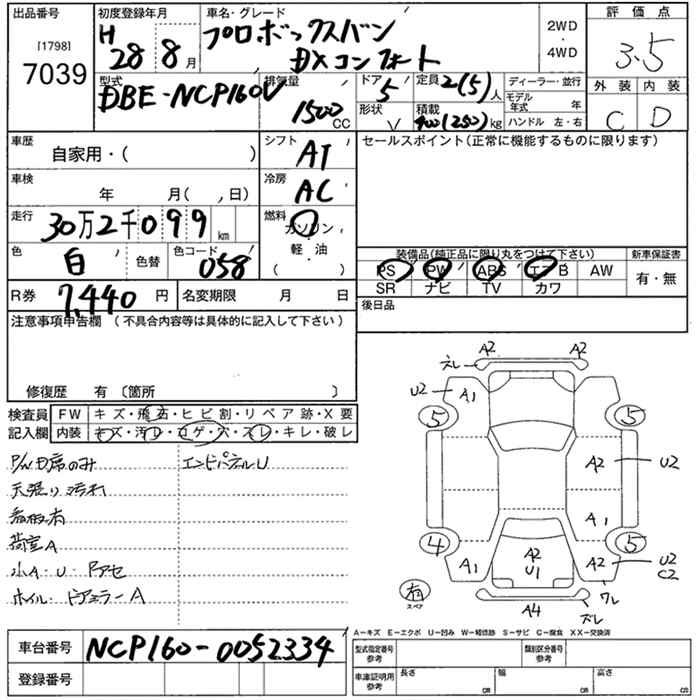 出品番号
[1798]
7039
初度登録年月
H 28年 8月
車名・グレード
プロボックスバン
DXコンフォート
2WD
・
4WD
評価点
3.5
外装 内装
C D
型式
DBE-NCP160V
排気量
1500 CC
ドア
5
形状
V
定員
2(5)人
積載
400(250)kg
ディーラー・並行
モデル年式 年
ハンドル 左・右
車歴
自家用・( )
シフト
AT
車検
年 月( , 日)
冷房
AC
走行
30万2千099km
燃料
ガソリン・
軽油・
( )
色
白
色替
色コード
058
R券 7,440円
名変期限 月 日
セールスポイント(正常に機能するものに限ります)
装備品(純正品に限り丸をつけて下さい)
PS PW ABS エアB AW
SR ナビ TV カワ
新車保証書
有・無
後日品
注意事項申告欄 (不具合内容等は具体的に記入して下さい)
修復歴 有 〔箇所 〕
検査員記入欄
FW キズ・飛石・ヒビ割・リペア跡・X要
内装 キズ・汚レ・コゲ・穴・スレ・キレ・破レ
P/W D席のみ
エンドパネルU
天張り汚れ
荷室A
小A・U・ドアセ
ホイル・ドアミラーA
ズレ A2 A2
U2 A1
5 5
A2 U2
A1
4 5
A1 A2 U1 A2 U2 C2
ワレ
有
スペア
A4 ズレ
A−キズ E−エクボ U−凹み W−補修跡 S−サビ C−腐食 XX−交換済
車台番号 NCP160-0052334
登録番号
型式指定番号
参考
類別区分番号
参考
車庫証明用
参考
長さ cm
幅 cm
高さ cm